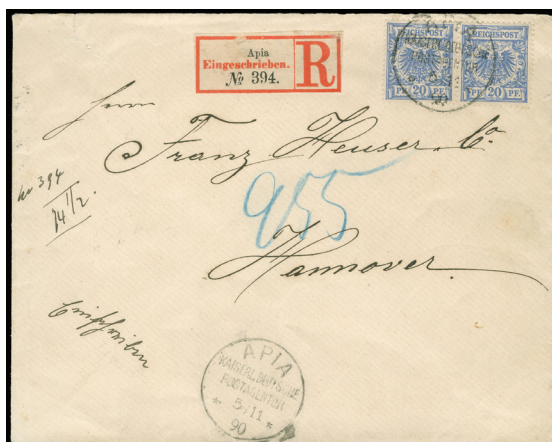 Apia
Eingeschrieben.
№ 394.
R
REICHSPOST
PF. 20 PF.
REICHSPOST
PF. 20 PF.
Herrn
Franz Heuser & Co
No 394
14/2.
955
Hannover.
Einschreiben
APIA
KAISERL. DEUTSCHE
POSTAGENTUR
5/11
90